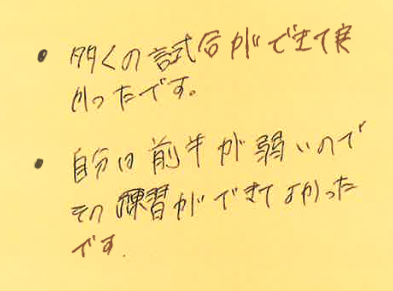 ・多くの試合ができて良
かったです。
・自分は前半が弱いので
その練習ができてよかった
です.